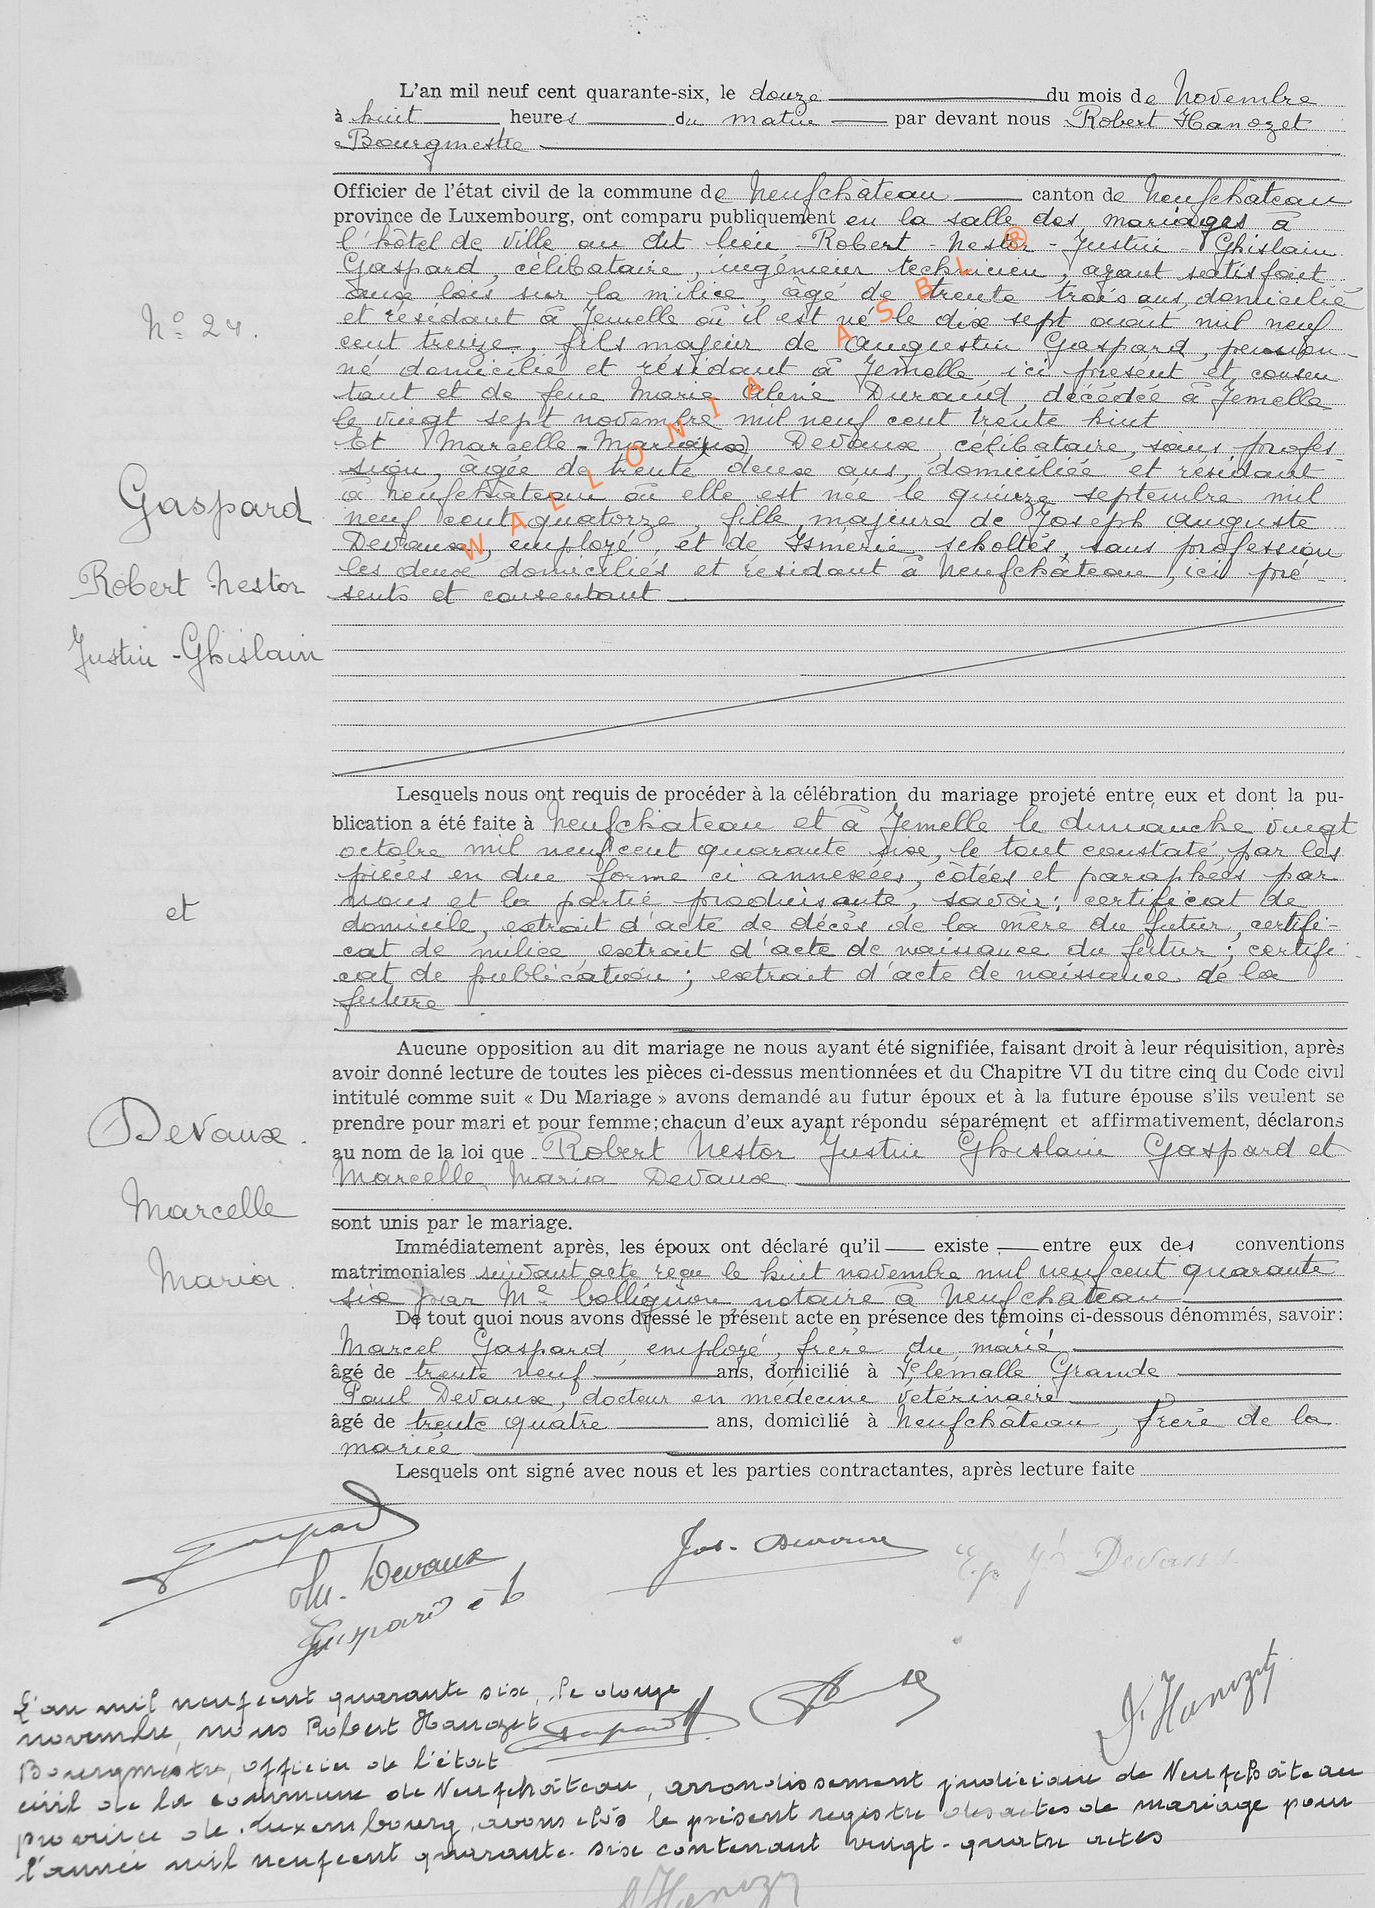 L'an mil neuf cent quarante-six, le douze du mois de Novembre
à huit heures du matin par devant nous Robert Hanozet
Bourgmestre
Officier de l'état civil de la commune de Neufchâteau canton de Neufchâteau
province de Luxembourg, ont comparu publiquement en la salle des mariages à
l'hôtel de ville au dit lieu Robert - Nestor - Justin - Ghislain
Gaspard, célibataire, ingénieur technicien, ayant satisfait
aux lois sur la milice, âgé de trente trois ans, domicilié
et résidant à Jemelle où il est né le dix sept août mil neuf
cent treize, fils majeur de Augustin Gaspard, pension-
né domicilié et résidant à Jemelle, ici présent et consen
tant et de feue Marie Durand, décédée à Jemelle
le vingt sept novembre mil neuf cent trente huit
Et Marcelle - Maria Devaux, célibataire, sans profes
sion, âgée de trente deux ans, domiciliée et résidant
à Neufchâteau où elle est née le quinze septembre mil
neuf cent quatorze, fille majeure de Joseph Auguste
Devaux, employé, et de Ismerie Scholtès, sans profession
les deux domiciliés et résidant à Neufchâteau, ici pré-
sents et consentant
WALLONIA ASBL ®
N° 24.
Gaspard
Robert Nestor
Justin - Ghislain
et
Devaux.
Marcelle
Maria.
Lesquels nous ont requis de procéder à la célébration du mariage projeté entre eux et dont la pu-
blication a été faite à Neufchateau et à Jemelle le dimanche vingt
octobre mil neuf cent quarante six, le tout constaté par les
pièces en due forme ci annexées, côtées et paraphées par
nous et la partie produisante, savoir: certificat de
domicile, extrait d'acte de décès de la mère du futur, certifi-
cat de milice, extrait d'acte de naissance du futur; certifi
cat de publication; extrait d'acte de naissance de la
future
Aucune opposition au dit mariage ne nous ayant été signifiée, faisant droit à leur réquisition, après
avoir donné lecture de toutes les pièces ci-dessus mentionnées et du Chapitre VI du titre cinq du Code civil
intitulé comme suit « Du Mariage » avons demandé au futur époux et à la future épouse s'ils veulent se
prendre pour mari et pour femme; chacun d'eux ayant répondu séparément et affirmativement, déclarons
au nom de la loi que Robert Nestor Justin Ghislain Gaspard et
Marcelle Maria Devaux
sont unis par le mariage.
Immédiatement après, les époux ont déclaré qu'il existe entre eux des conventions
matrimoniales suivant acte reçu le huit novembre mil neuf cent quarante
six par Me Collignon notaire à Neufchâteau
De tout quoi nous avons dressé le présent acte en présence des témoins ci-dessous dénommés, savoir:
Marcel Gaspard, employé, frère du marié
âgé de trente neuf ans, domicilié à Flémalle Grande
Paul Devaux, docteur en médecine vétérinaire
âgé de trente quatre ans, domicilié à Neufchâteau, frère de la
mariée
Lesquels ont signé avec nous et les parties contractantes, après lecture faite
Gaspard
M. Devaux
Jos. Devaux
Ep. Devaux
Gaspard
R. Hanozet
L'an mil neuf cent quarante six, le douze
novembre, nous Robert Hanozet
Bourgmestre, officier de l'état
civil de la commune de Neufchâteau, arrondissement judiciaire de Neufchâteau
province de Luxembourg, avons clos le présent registre des actes de mariage pour
l'année mil neuf cent quarante-six contenant vingt-quatre actes
Hanozet